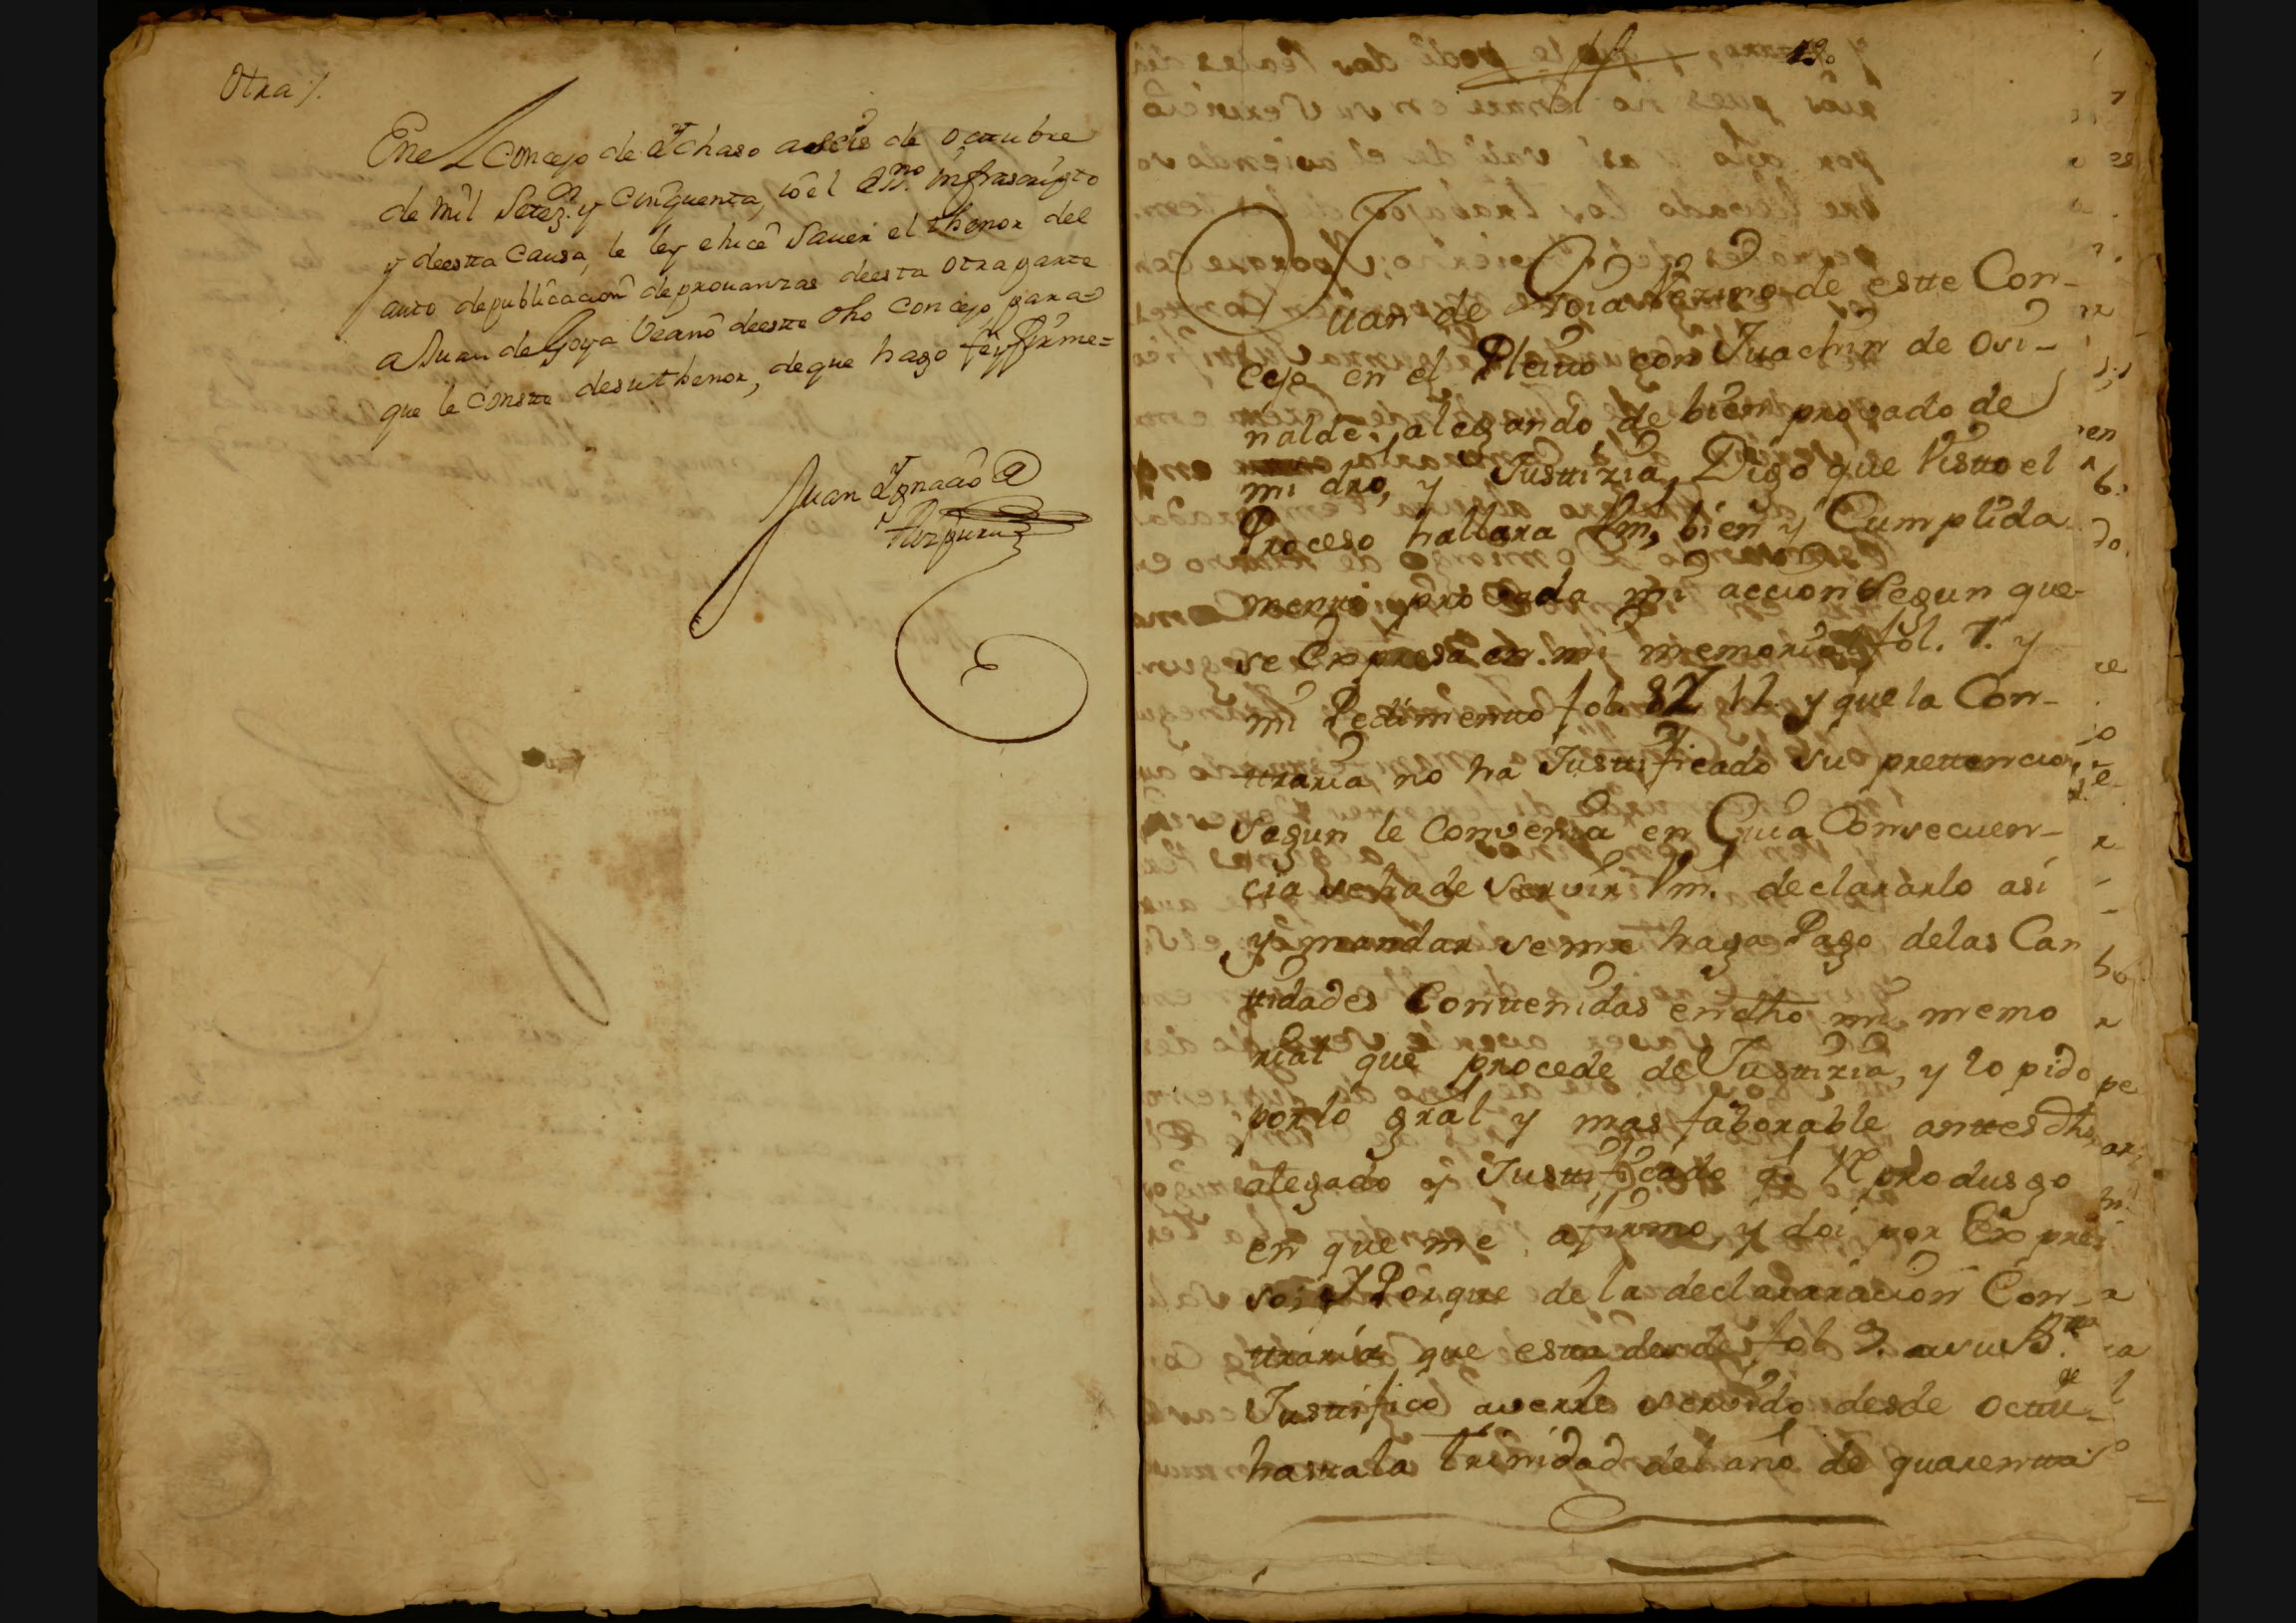 Otra /.
Ene L Concejo de Ychaso a seis de Octubre
de mil Setez.os y Cinquenta, io el Ess.no infrascripto
y deesta Causa, le ley e hice Saver el thenor del
auto depublicacion de provanzas deesta otra parte
a Juan de Goya Vecino deeste dho Concejo, para
que le Conste desuthenor, deque hago fe y firme=
Juan Ygnacio
19.
Juan de Goia Vezino de estte Con-
cejo en el Pleitto con Juachin de Ori-
nalde, alegando de bien provado de
mi dro, y Justtizia, Digo que Vistto el
Proceso hallara Vm, bien y Cumplida
mentte provada mi accion Segun que
se Expresa en mi memorial fol. 1. y
mi Pedimentto fol. 12. y que la Con-
ttraria no ha Justtificado su prettencion
Segun le Convenia en Cuia Consecuen-
cia se ha de servir Vm. declararlo asi
y mandar se me haga Pago delas Can
ttidades Conttenidas en dho mi memo
rial que procede de Justtizia, y lo pido
por lo gral y mas faborable anttes dho,
alegado y Justtificado q.e Reprodusgo
en que me afirmo, y doi por Expre
so; Y Porque de la declararacion Con-
ttraria que estta desde fol 9. a su B.tta
Justtifico averle servido desde Octtu.e
hastala Trinidad del año de quarentta